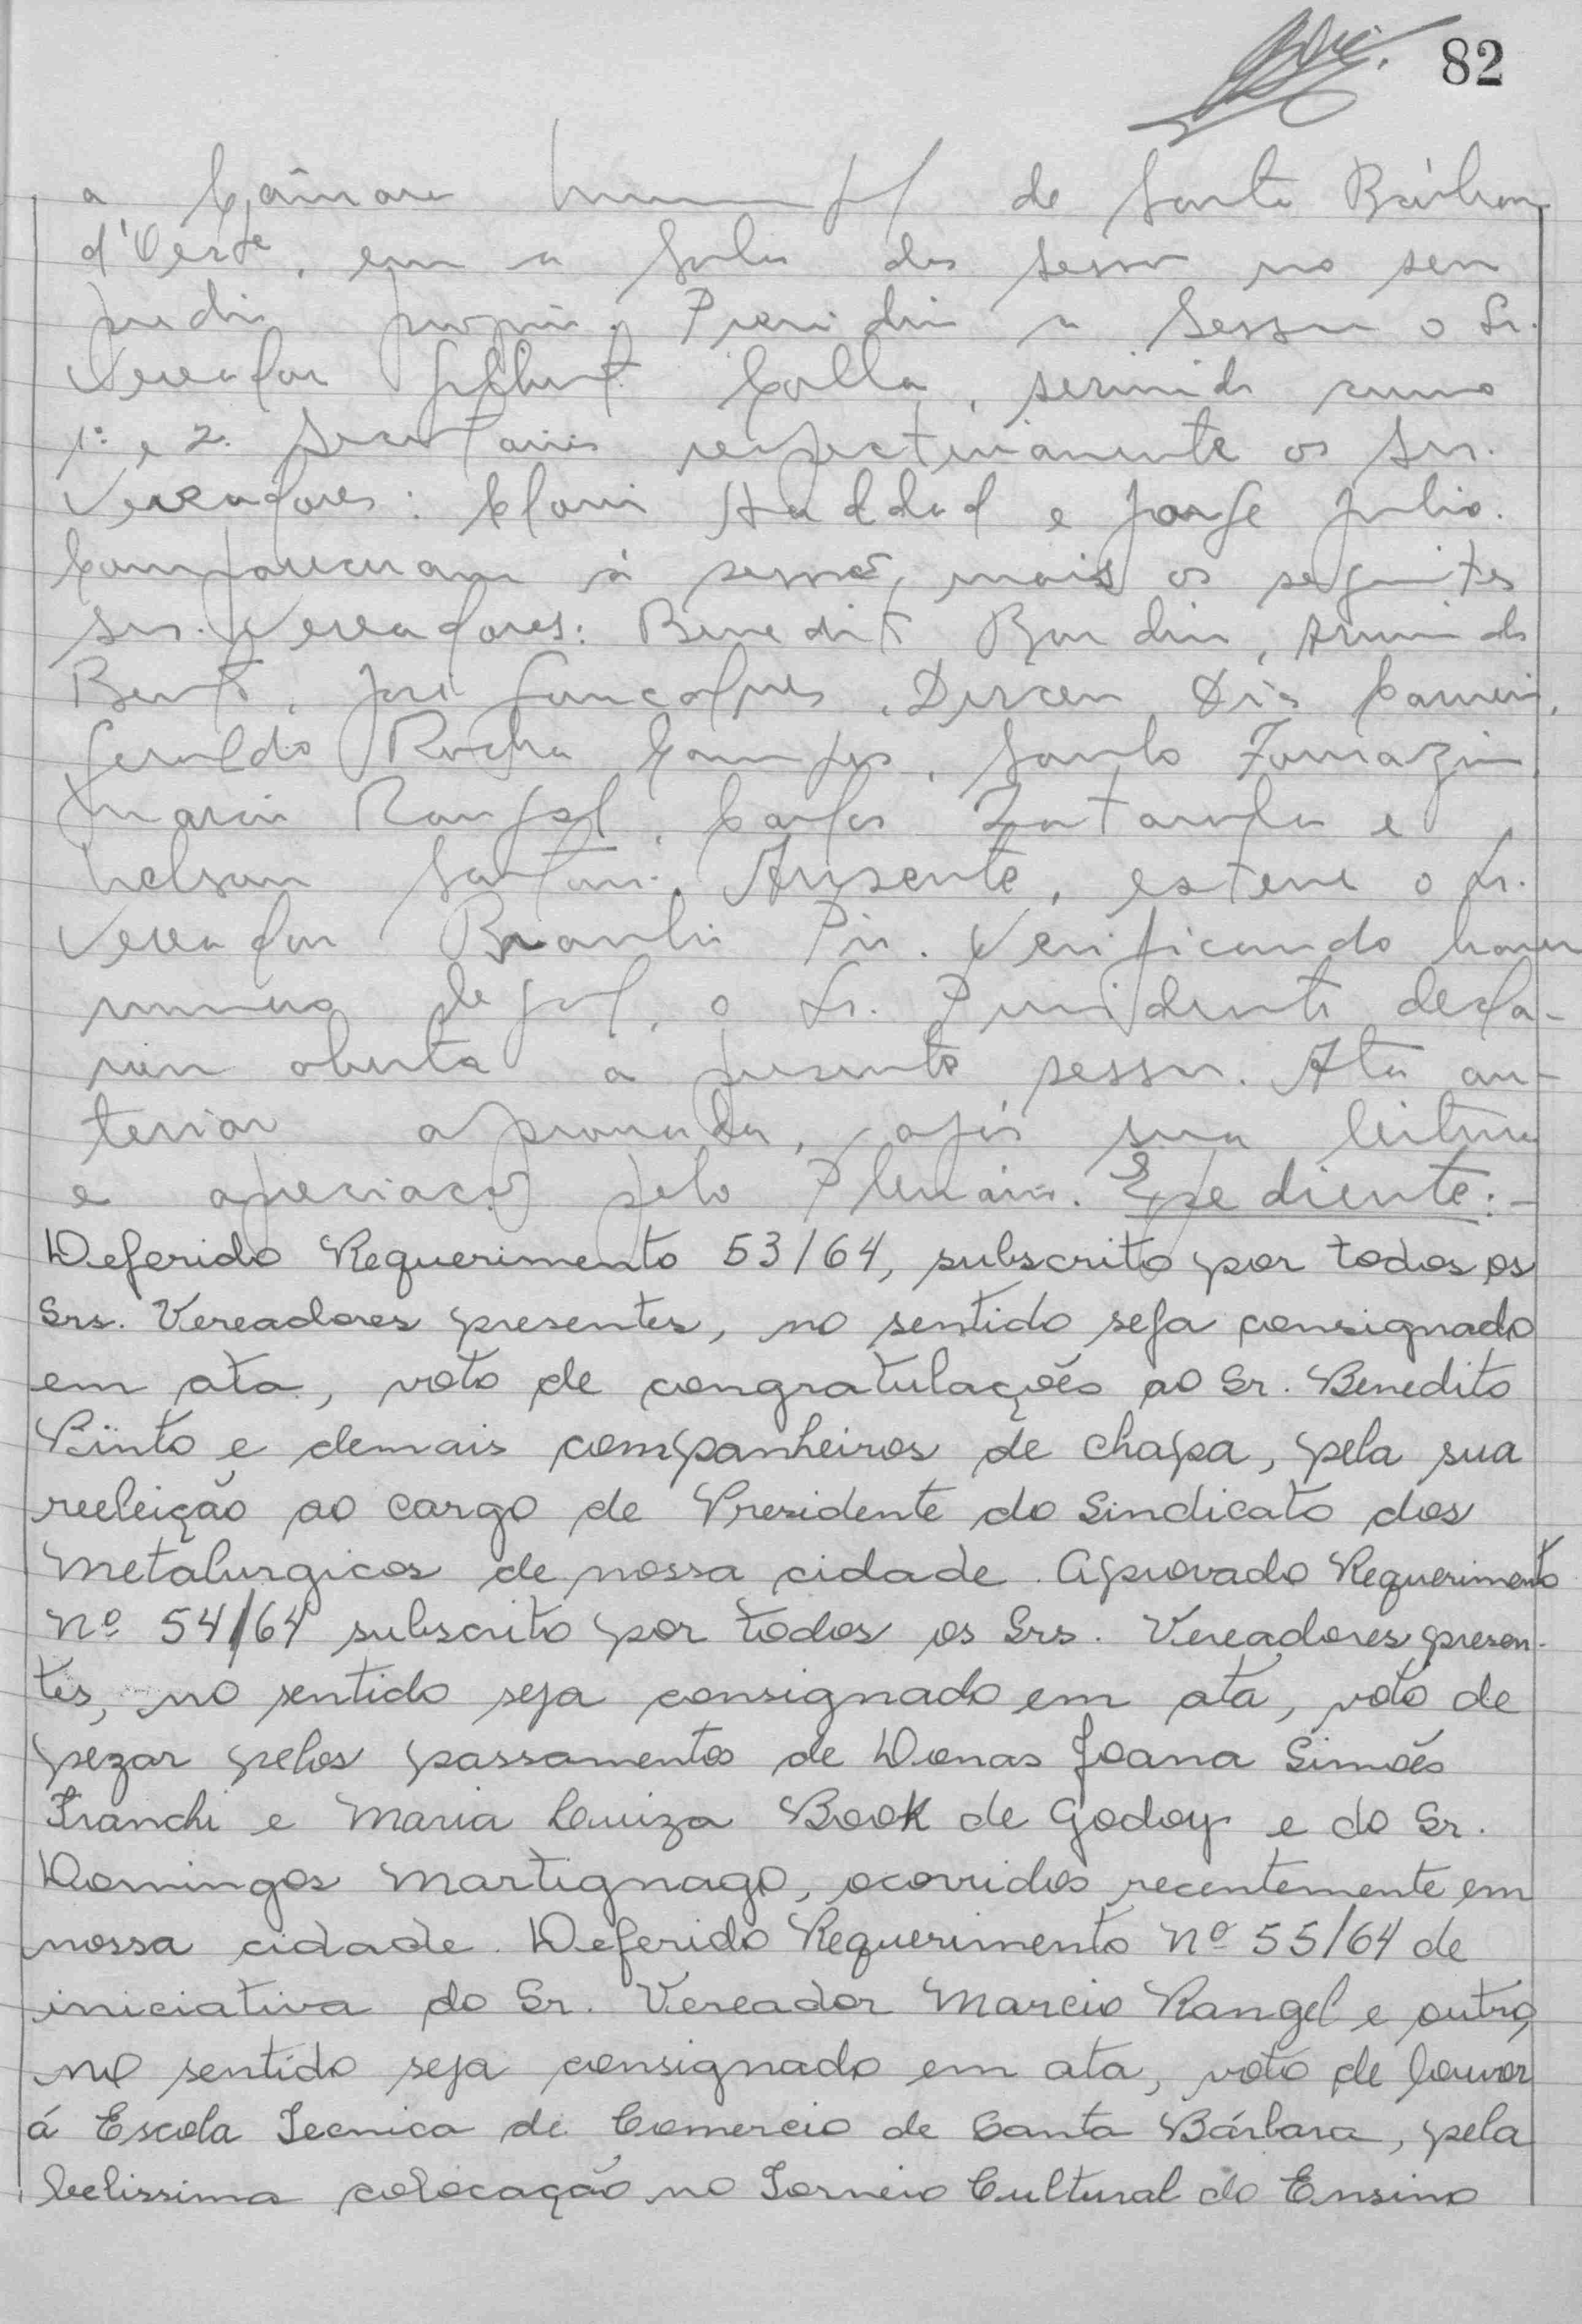 82
a Câmara Municipal de Santa Bárbara
d'Oeste, em a Sala das sessões no seu
predio proprio. Presidiu a Sessão o Sr.
Vereador Colla, servindo como
1º e 2º Secretarios respectivamente os Srs.
Vereadores: Haddad e Jorge Julio.
Compareceram à sessão, mais os seguintes
Srs. Vereadores: Benedito Armindo
Bento, José Gonçalves, Dirceu Dias Carneiro,
Geraldo Rocha Campos, Santo Tomazin,
Marcio Rangel, Carlos e
Nelson Ausente, esteve o Sr.
Vereador Braulio Pio. Verificando haver
numero legal, o Sr. Presidente decla-
rou aberta a presente sessão. Ata an-
terior aprovada, após sua leitura
e apreciação pelo Plenário. Expediente:-
Deferido Requerimento 53/64, subscrito por todos os
Srs. Vereadores presentes, no sentido seja consignado
em ata, voto de congratulações ao Sr. Benedito
Pinto e demais companheiros de chapa, pela sua
reeleição ao cargo de Presidente do Sindicato dos
Metalurgicos de nossa cidade. Aprovado Requerimento
Nº 54/64 subscrito por todos os Srs. Vereadores presen-
tes, no sentido seja consignado em ata, voto de
pezar pelos passamentos de Donas Joana Simões
Franchi e Maria Luiza Book de Godoy e do Sr.
Domingos Martignago, ocorridos recentemente em
nossa cidade. Deferido Requerimento Nº 55/64 de
iniciativa do Sr. Vereador Marcio Rangel e outro,
no sentido seja consignado em ata, voto de louvor
á Escola Tecnica de Comercio de Santa Bárbara, pela
belissima colocação no Torneio Cultural do Ensino